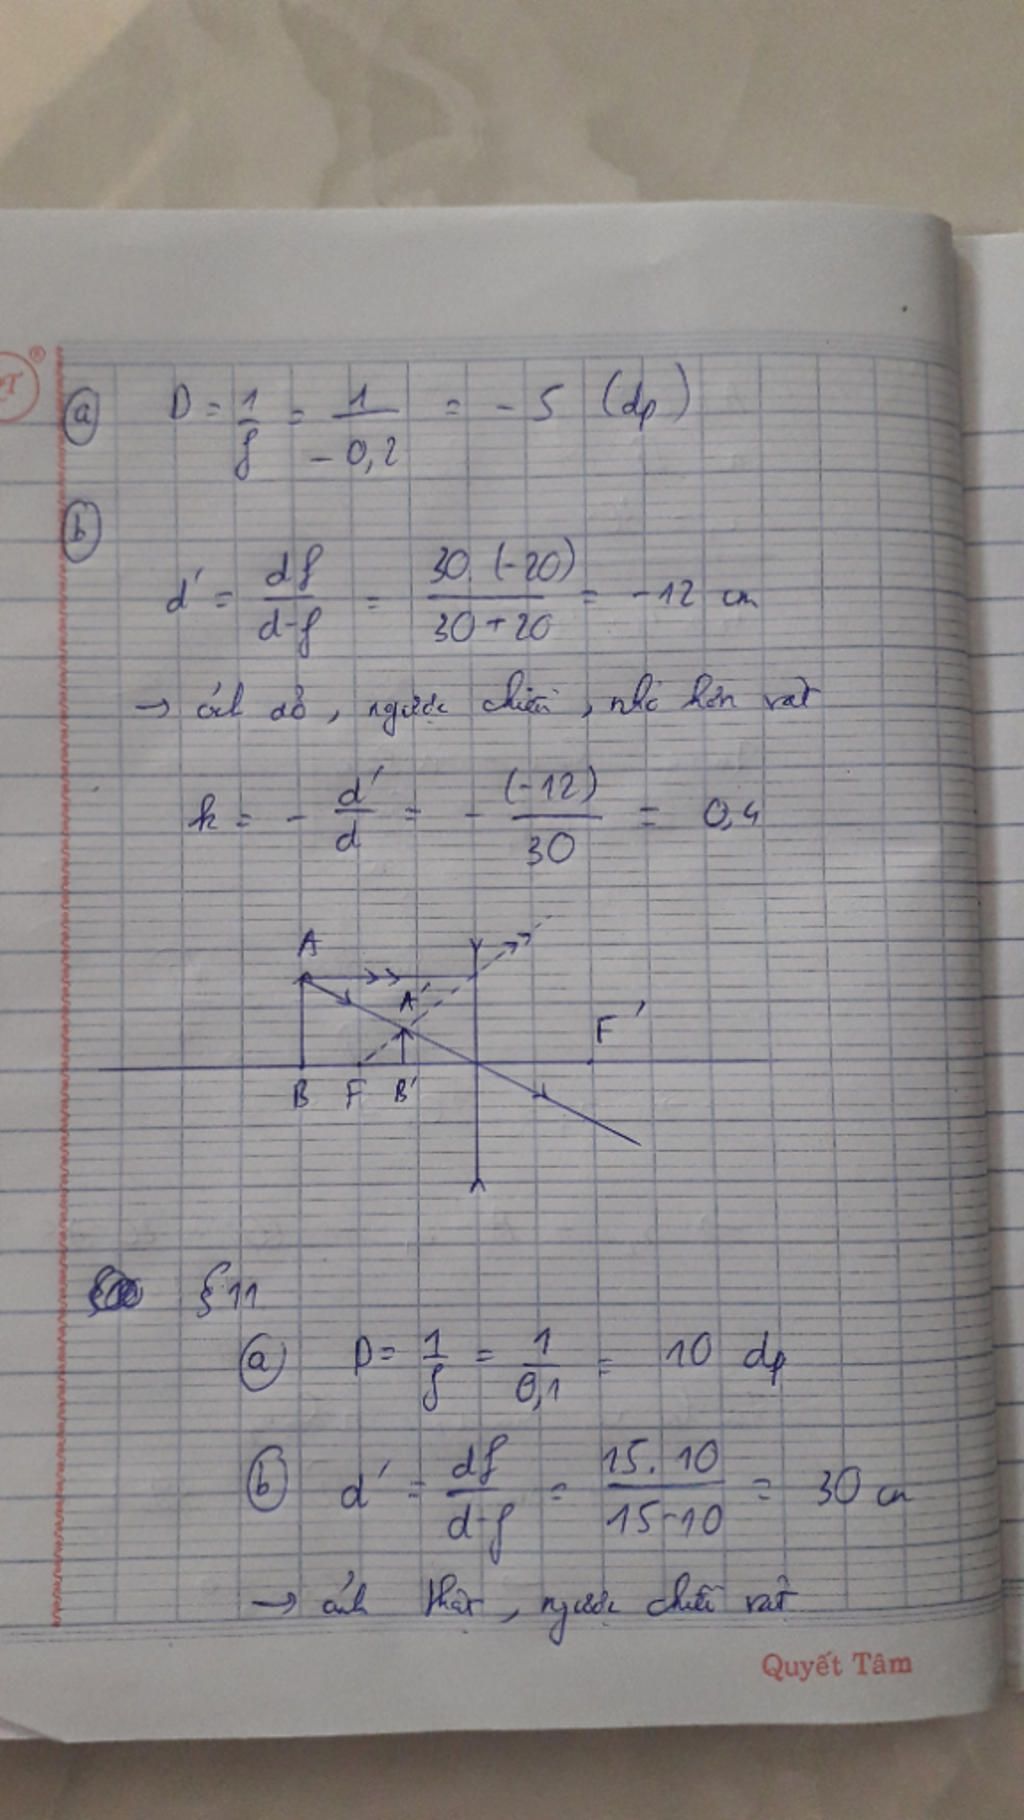 ⓐ D = 1/f = 1/-0,2 = -5 (dp)
ⓑ
d' = df/d-f = 30.(-20)/30+20 = -12 cm
→ ảnh ảo, ngược chiều, nhỏ hơn vật
k = - d'/d = - (-12)/30 = 0,4
A
A'
F'
B F B'
§ 11
ⓐ D = 1/f = 1/0,1 = 10 dp
ⓑ d' = df/d-f = 15.10/15-10 = 30 cm
→ ảnh thật, ngược chiều vật
Quyết Tâm